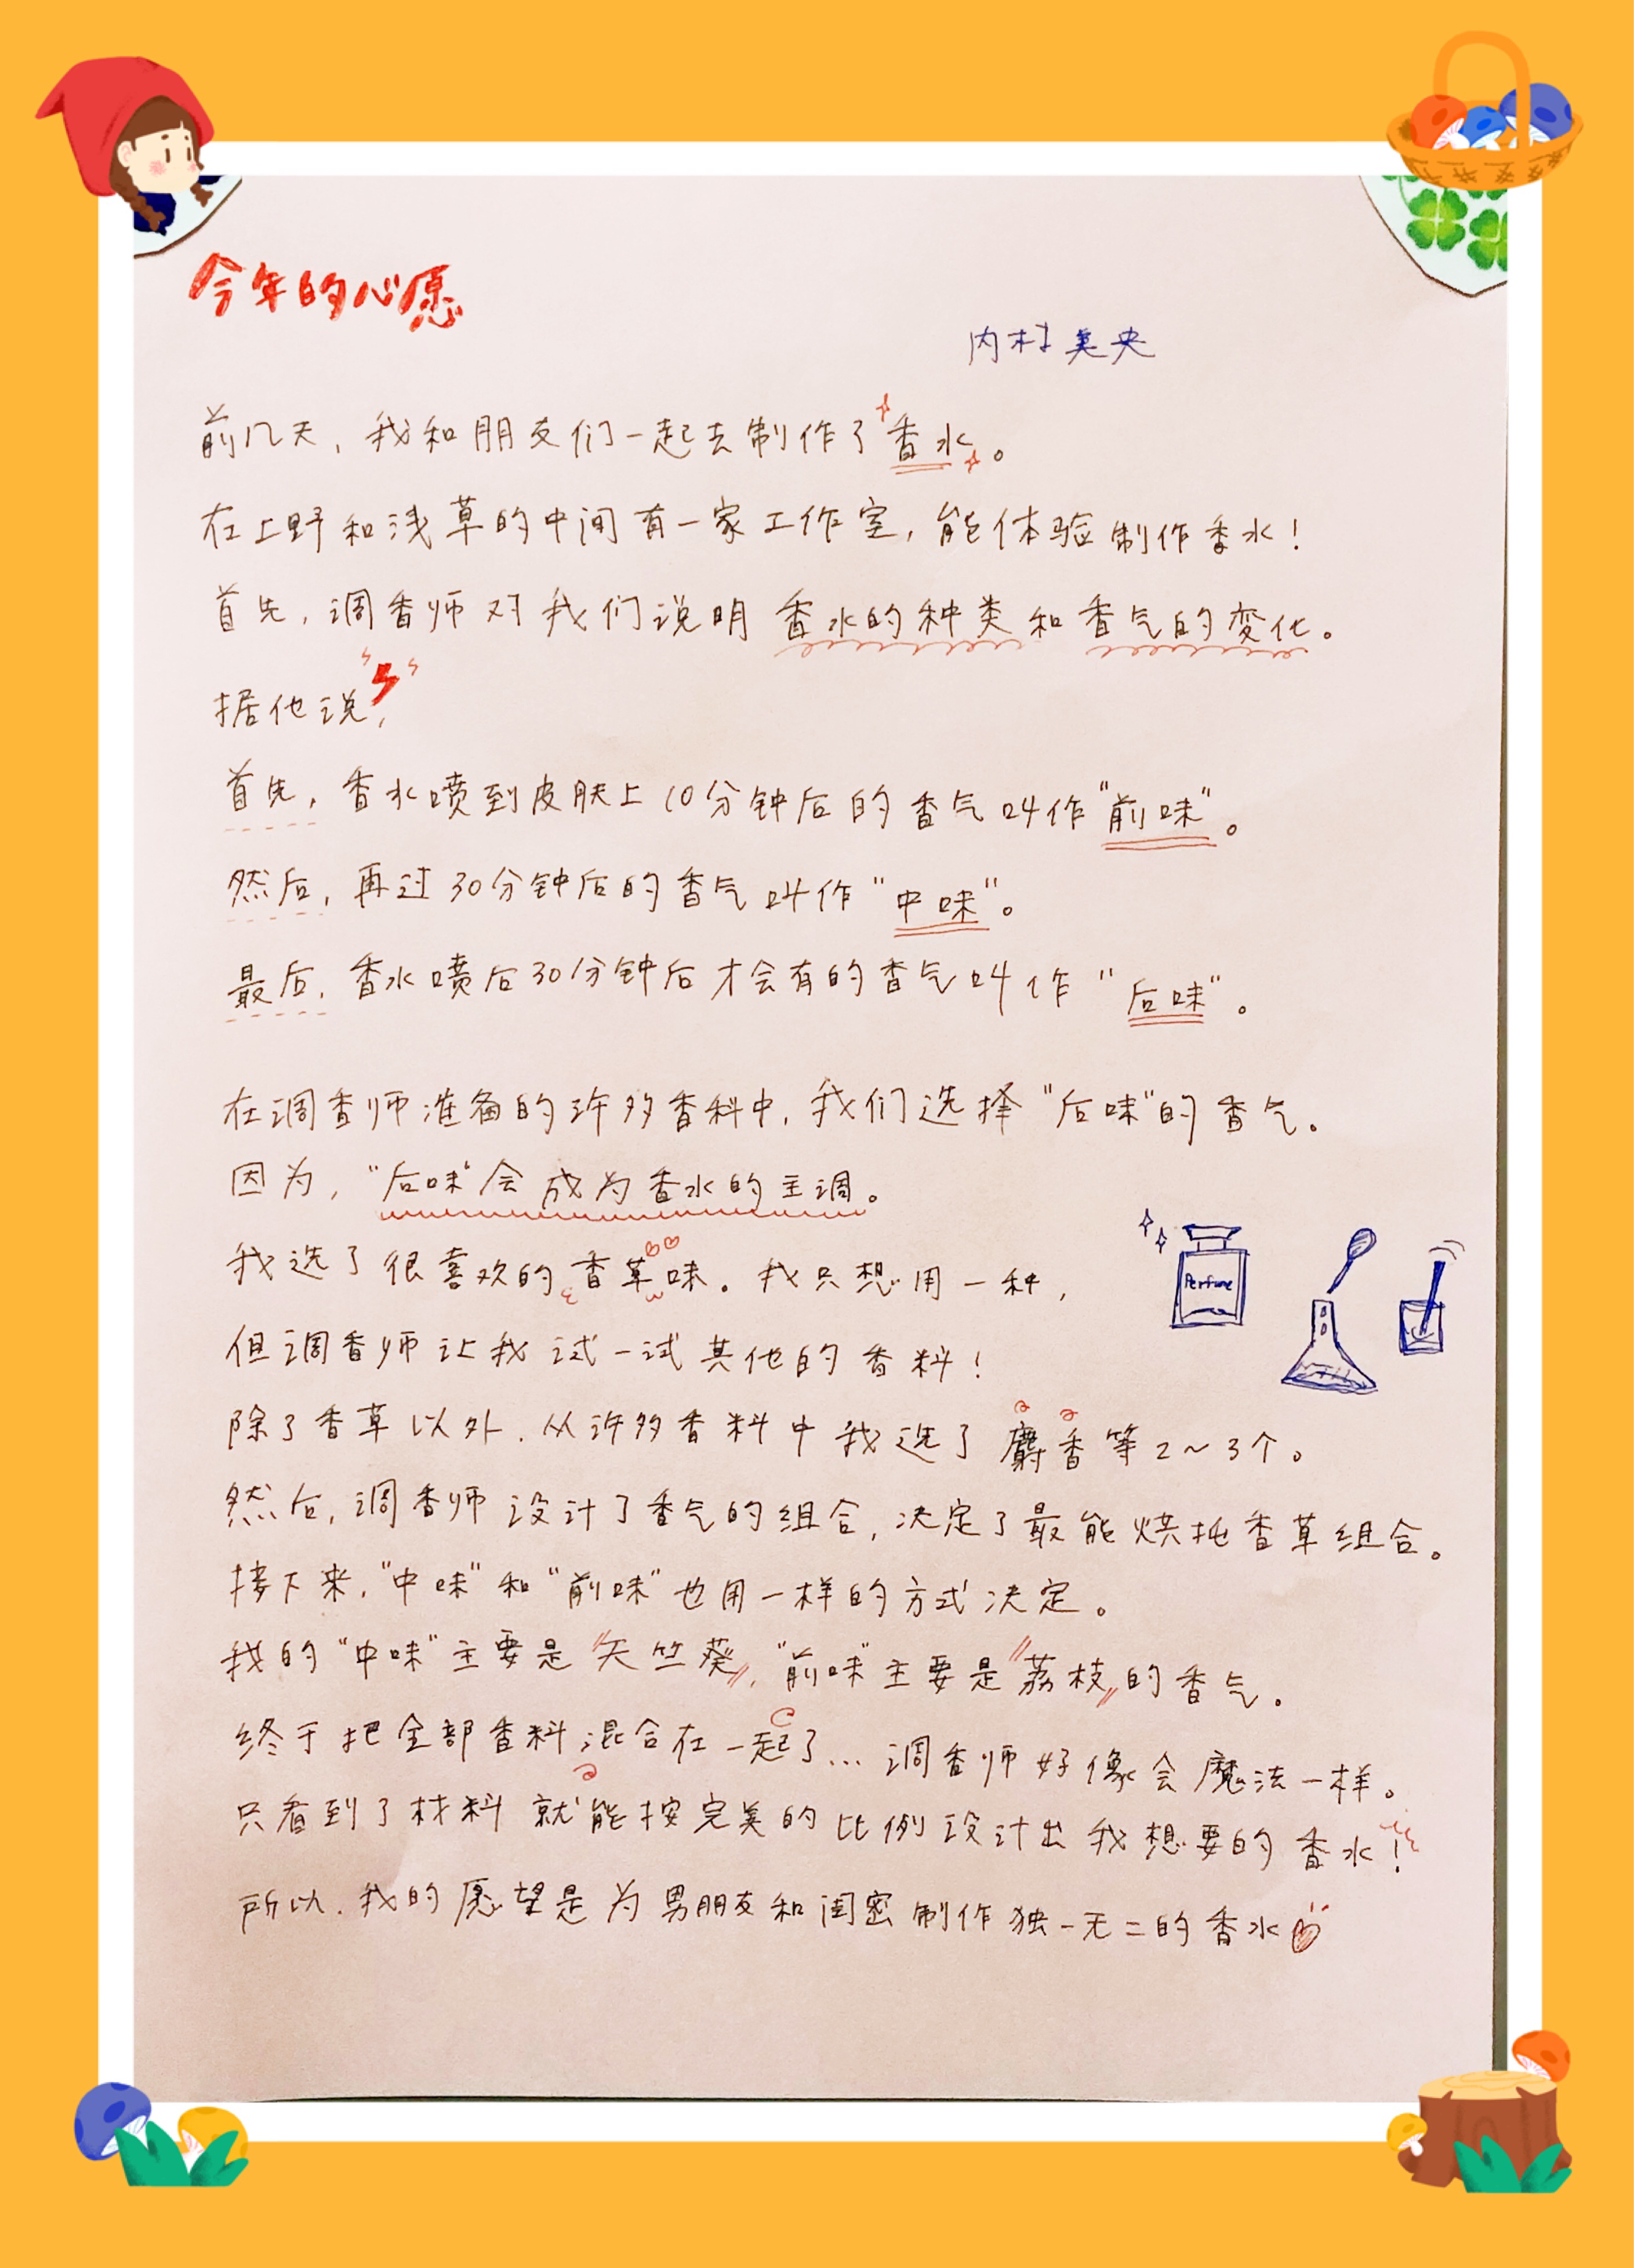 今年的心愿
内村美央
前几天，我和朋友们一起去制作了香水。
在上野和浅草的中间有一家工作室，能体验制作香水！
首先，调香师对我们说明香水的种类和香气的变化。
据他说，
首先，香水喷到皮肤上10分钟后的香气叫作“前味”。
然后，再过30分钟后的香气叫作“中味”。
最后，香水喷后30分钟后才会有的香气叫作“后味”。
在调香师准备的许多香料中，我们选择“后味”的香气。
因为，“后味”会成为香水的主调。
我选了很喜欢的香草味。我只想用一种，
Perfume
但调香师让我试一试其他的香料！
除了香草以外，从许多香料中我选了麝香等2～3个。
然后，调香师设计了香气的组合，决定了最能烘托香草组合。
接下来，“中味”和“前味”也用一样的方式决定。
我的“中味”主要是〝天竺葵〟，“前味”主要是〝荔枝〟的香气。
终于把全部香料混合在一起了…调香师好像会魔法一样。
只看到了材料就能按完美的比例设计出我想要的香水！
所以，我的愿望是为男朋友和闺密制作独一无二的香水